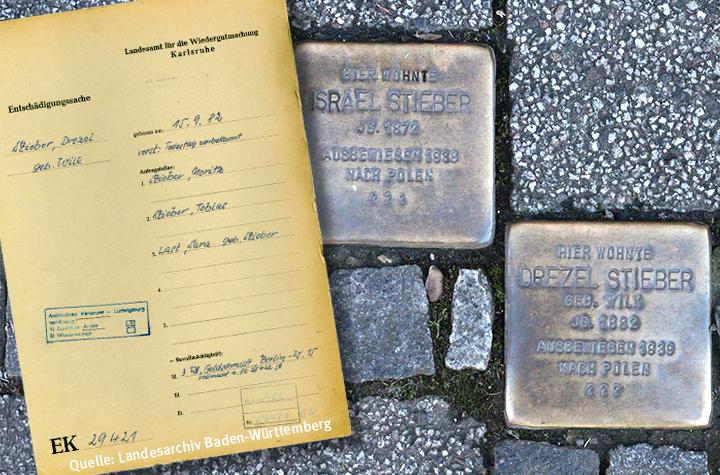 Landesamt für die Wiedergutmachung
Karlsruhe
Entschädigungssache
Stieber, Drezel
geb. Wilk
geboren am: 15.9.82
verst. Todestag unbekannt
Antragsteller:
1. Stieber, Moritz
2. Stieber, Tobias
3. Last, Sara geb. Stieber
4.
5.
Bevollmächtigte(r):
Goldschmidt Berlin
EK 29421
Quelle: Landesarchiv Baden-Württemberg
HIER WOHNTE
ISRAEL STIEBER
JG. 1872
AUSGEWIESEN 1939
NACH POLEN
? ? ?
HIER WOHNTE
DREZEL STIEBER
GEB. WILK
JG. 1882
AUSGEWIESEN 1939
NACH POLEN
? ? ?